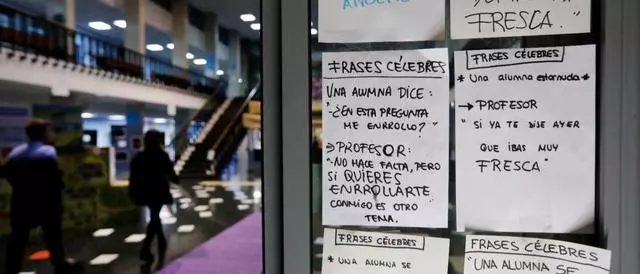 FRESCA."
FRASES CÉLEBRES
UNA ALUMNA DICE:
"-¿EN ESTA PREGUNTA
ME ENRROLLO?"
→ PROFESOR:
"-NO HACE FALTA, PERO
SI QUIERES
ENRROLLARTE
CONMIGO ES OTRO
TEMA.
FRASES CÉLEBRES
* UNA ALUMNA SE
FRASES CÉLEBRES
* Una alumna estornuda *
→ PROFESOR
"SI YA TE DIJE AYER
QUE IBAS MUY
FRESCA"
FRASES CÉLEBRES
"UNA ALUMNA SE